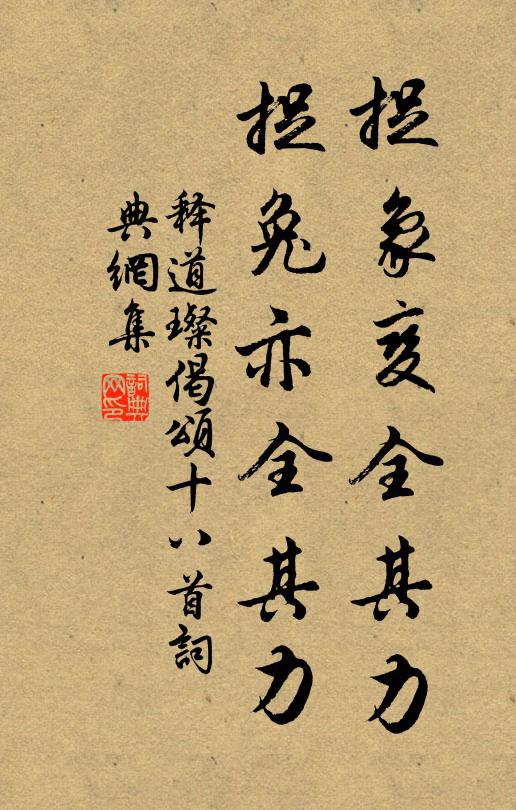 捉象变全其力
捉兔亦全其力
释道璨偈頌十八首詞
典網集
詞典
网印